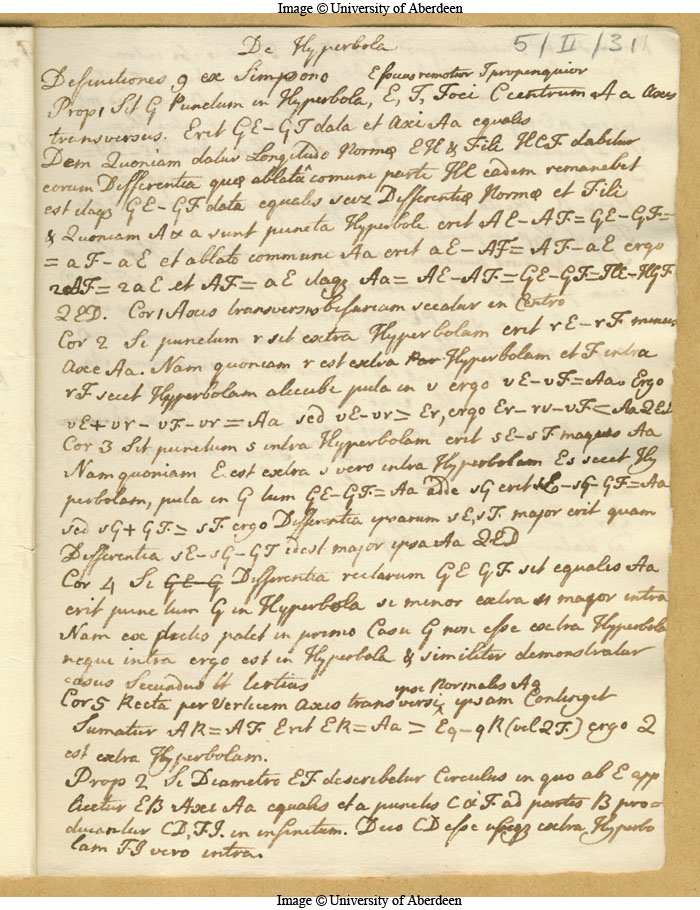 Image © University of Aberdeen
De Hyperbola
5/II/31
Definitiones 9 ex Simpsono E focus remotior F propenquior
Prop 1 Sit G Punctum in Hyperbola, E, F, Foci C centrum A a Axis
transversus. Erit GE-GF data et Axi Aa equalis
Dem Quoniam datur Longitudo Normæ EH & Fili HGF dabitur
eorum Differentia quæ ablatâ comune parte HG eadem remanebit
est itaq GE-GF data equalis scrz Differentiæ Normæ et Fili
& Quoniam A & a sunt puncta Hyperbole erit AE-AF=GE-GF=
= aF-aE et ablato communi Aa erit aE-AF=AF-aE ergo
2AF=2aE et AF=aE itaqz Aa=AE-AF=GE-GF=
QED. Cor 1 Axis transversus bifariam secatur in Centro
Cor 2 Si punctum r sit extra Hyperbolam erit rE-rF minus
Axe Aa. Nam quoniam r est extra Hyperbolam et F intra
rF secet Hyperbolam alicubi puta in v ergo vE-vF=Aa. Ergo
vE+vr-vF-vr=Aa sed vE-vr Er, ergo Er-rv-vF Aa QED
Cor 3 Sit punctum s intra Hyperbolam erit sE-sF maqus Aa
Nam quoniam E est extra s vero intra Hyperbolam Es secet Hy
perbolam, puta in G tum GE-GF=Aa adde sG erit sE-sG-GF=Aa
sed sG+GF sF ergo Differentia ipsarum sE, sF major erit quam
Differentia sE-sG-GF idest major ipsa Aa QED
Cor 4 Si GE-G Differentia rectarum GE GF sit equalis Aa
erit punctum G in Hyperbola si minor extra si major intra
Nam ex dictis patet in primo Casu G non esse extra Hyperbola
neque intra ergo est in Hyperbola & similiter demonstratur
casus Secundus et tertius
Cor 5 Recta per Verticem Axeos transversi, ipse Normalis Aa ipsam Continget
Sumatur AR=AF Erit ER=Aa Eq-qR (vel QF) ergo Q
est extra Hyperbolam.
Prop 2 Si Diametro EF describetur Circulus in quo ab E app
licetur EB Axi Aa equalis et a punctis C & F ad partes B pro=
ducantur CD, FI. in infinitum. Dico CD esse extra Hyperbo
lam FI vero intra.
Image © University of Aberdeen